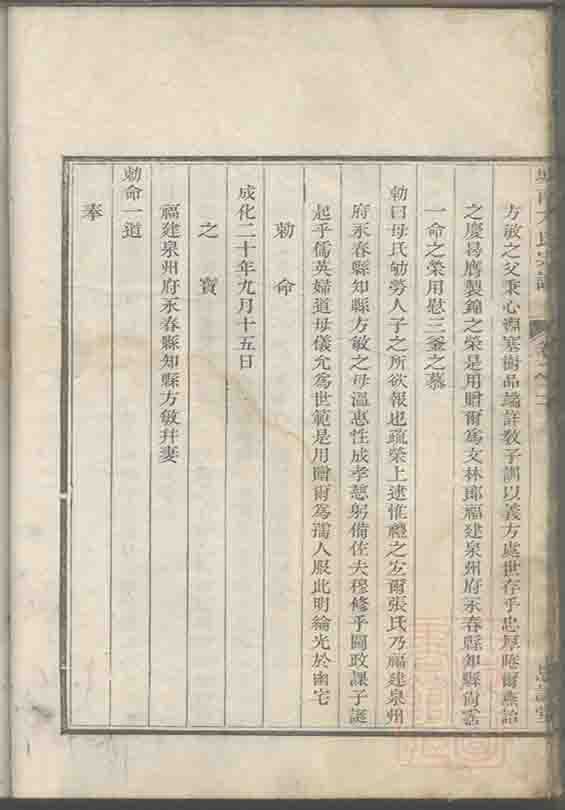 方氏宗譜
方敏之父秉心淵塞樹品端詳敎子訓以義方處世存乎忠厚睠爾燕詒
之慶昜膺製錦之榮是用贈爾爲文林郞福建泉州府永春縣知縣尙霑
一命之榮用慰三釜之慕
勅曰母氏劬勞人子之所欲報也疏榮上逮惟禮之宜爾張氏乃福建泉州
府永春縣知縣方敏之母溫惠性成孝慈躬備佐夫穆修乎閫政課子誕
起乎儒英婦道母儀允爲世範是用贈爾爲孺人服此明綸光於幽宅
勅命
成化二十年九月十五日
之寶
福建泉州府永春縣知縣方敏幷妻
勅命一道
奉